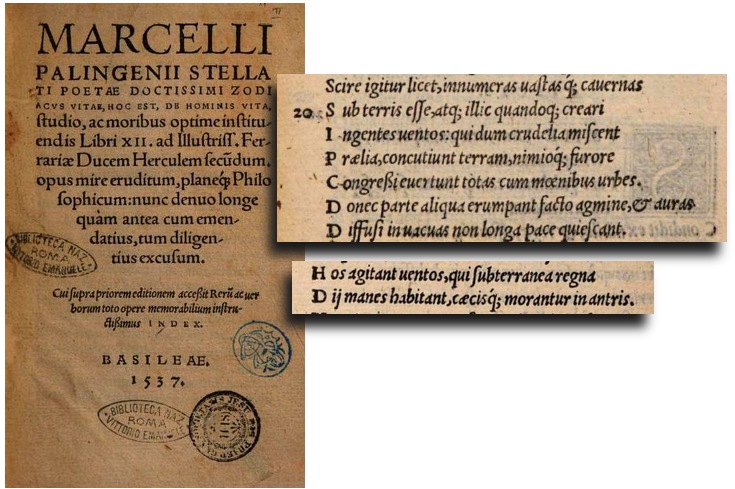 MARCELLI
PALINGENII STELLA
TI POETAE DOCTISSIMI ZODI
ACVS VITAE, HOC EST, DE HOMINIS VITA,
studio, ac moribus optime institu
endis Libri XII. ad Illustriss. Fer-
rariæ Ducem Herculem secūdum.
opus mire eruditum, planeq́; Philo
sophicum: nunc denuo longe
quàm antea cum emen-
datius, tum diligen-
tius excusum.
Cui supra priorem editionem accessit Rerū ac uer
borum toto opere memorabilium instru-
ctissimus INDEX.
BASILEAE.
1537.
BIBLIOTECA NAZ.
ROMA
VITTORIO EMANUELE
BIBLIOTECA NAZ.
ROMA
VITTORIO EMANUELE
Scire igitur licet, innumeras uastasq́; cauernas
20 Sub terris esse, atq; illic quandoq; creari
Ingentes uentos: qui dum crudelia miscent
Prælia, concutiunt terram, nimioq́; furore
Congressi euertunt totas cum mœnibus urbes.
Donec parte aliqua erumpant facto agmine, & auras
Diffusi in uacuas non longa pace quiescant.
Hos agitant uentos, qui subterranea regna
Dij manes habitant, cæcisq́; morantur in antris.